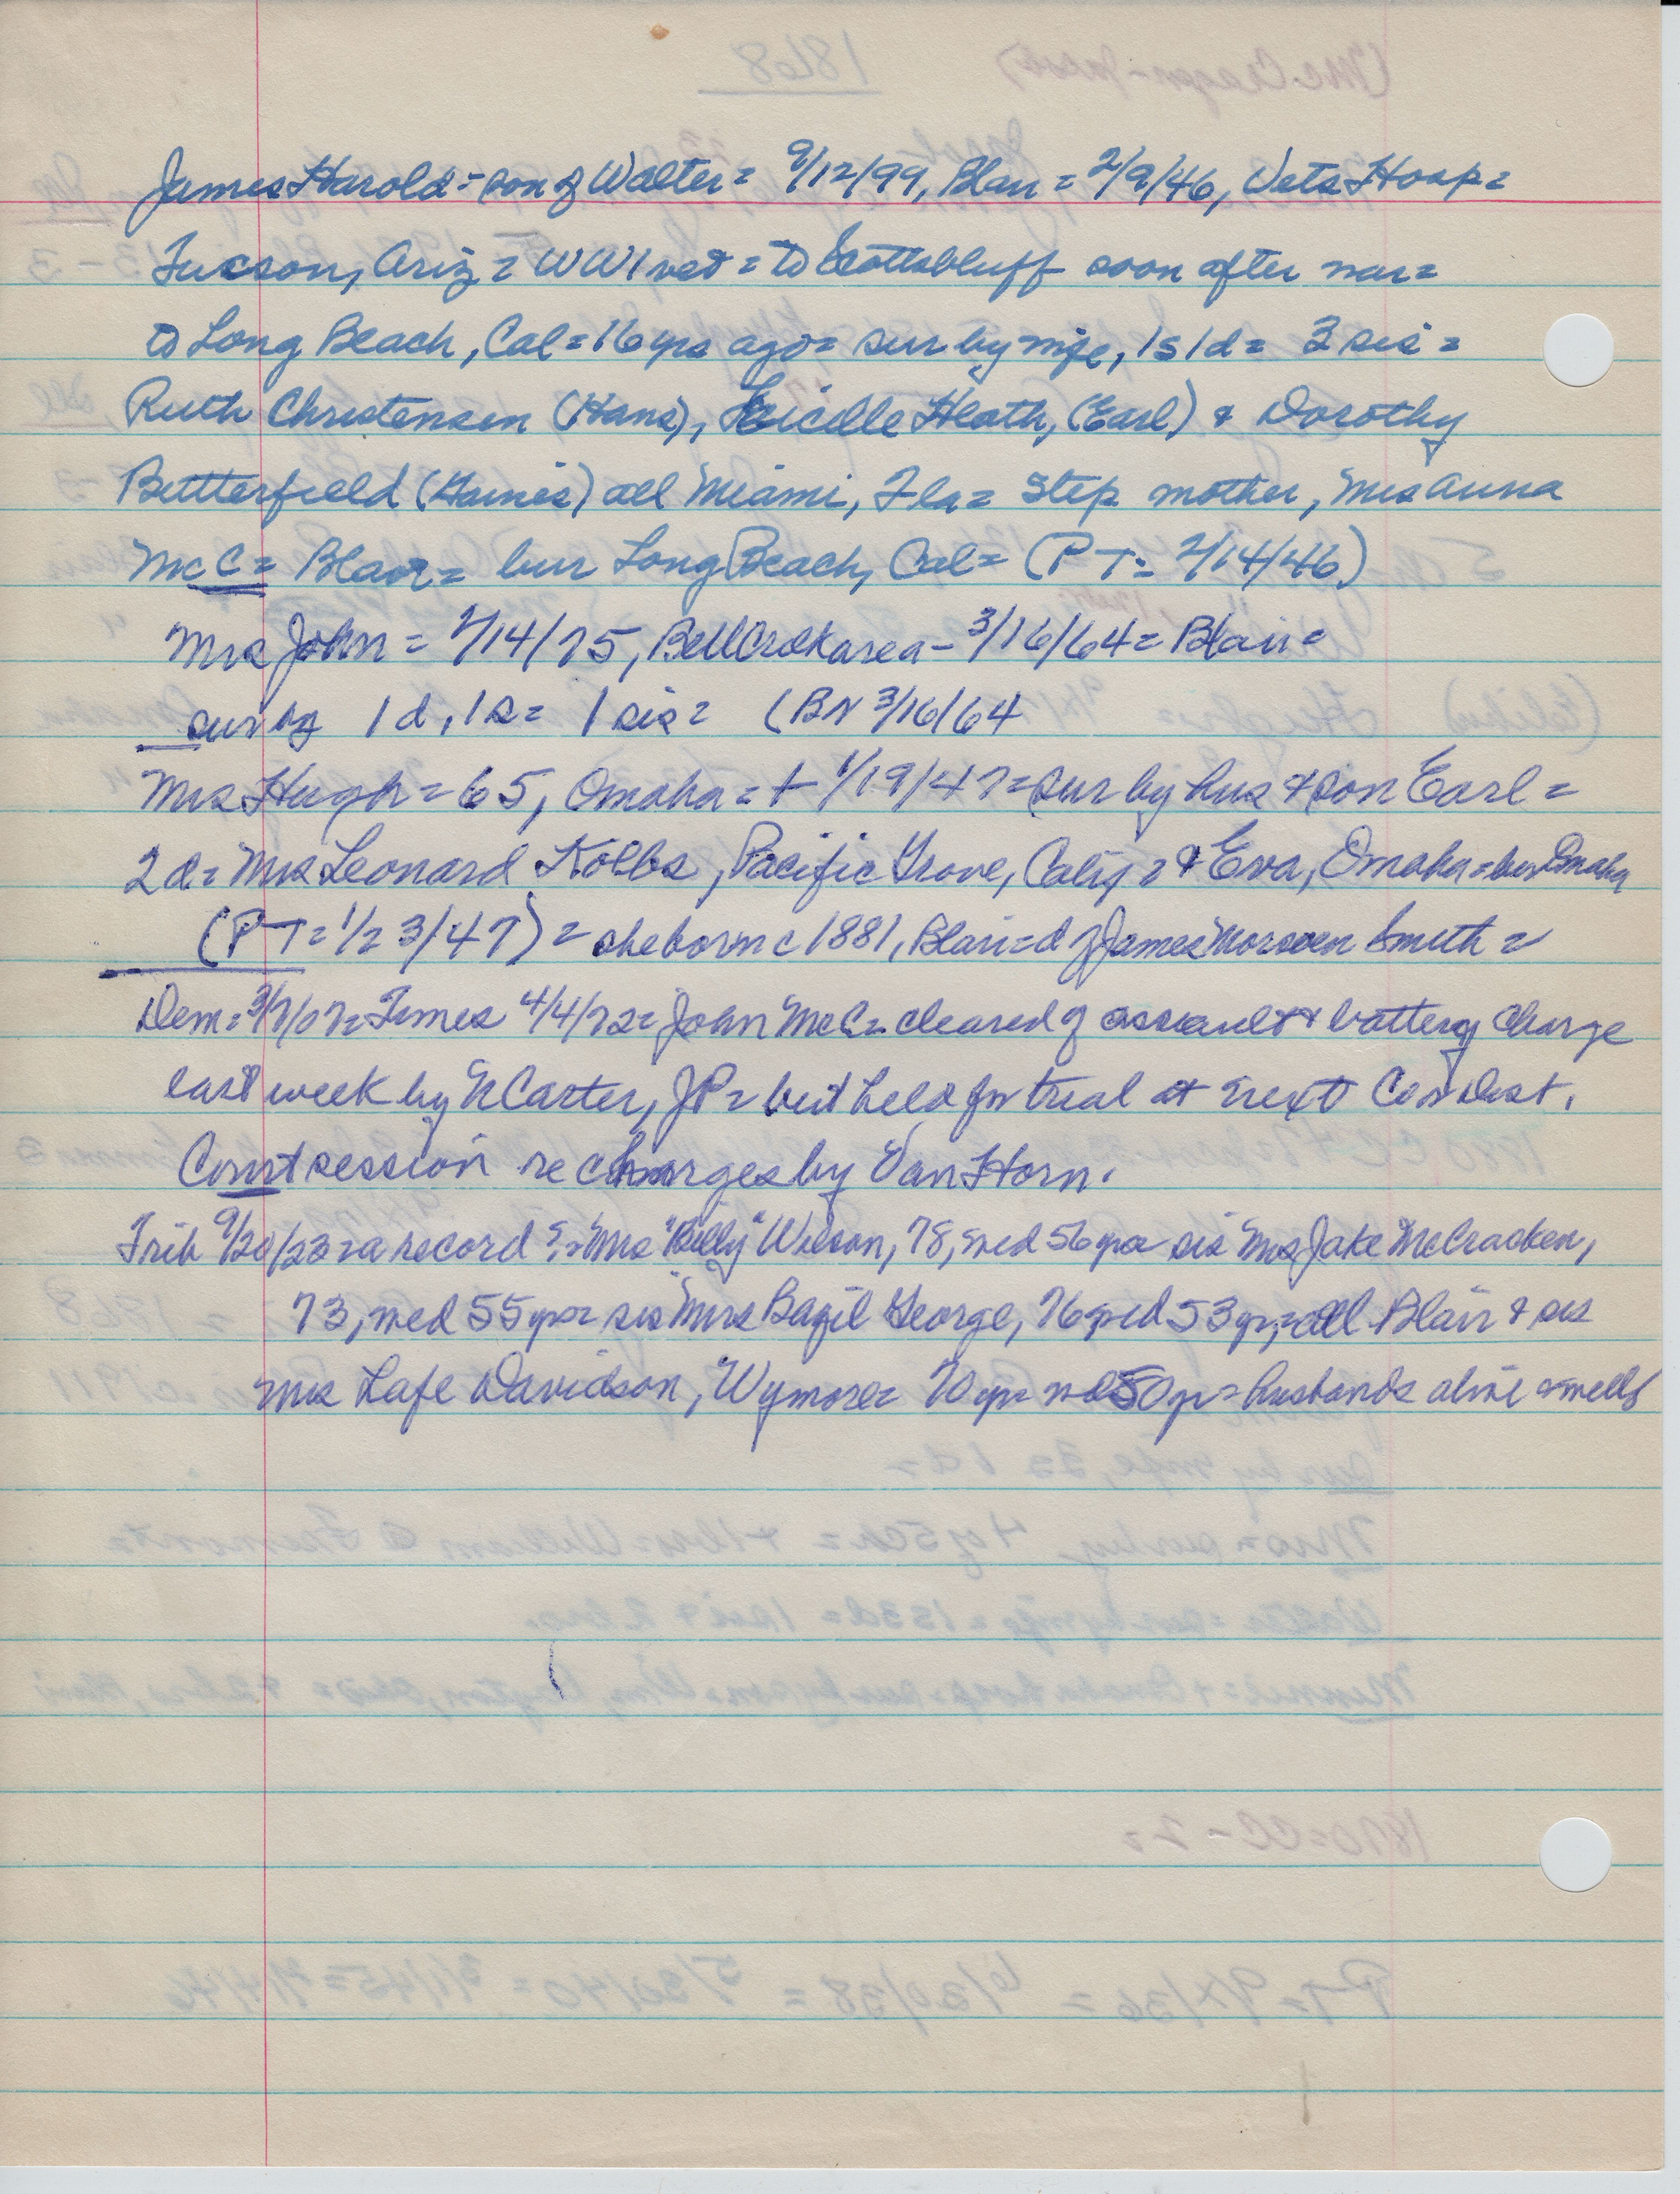 James Harold = son of Walter = 9/12/99, Blair = 2/9/46, Vets Hosp =
Tucson, Ariz = WW1 vet = to Scottsbluff soon after war =
to Long Beach, Cal = 16 yrs ago = sur by wife, 1s 1d = 3 sis =
Ruth Christensen (Hans), Lucille Heath, (Earl) & Dorothy
Butterfield () all Miami, Fla = Step mother, Mrs Anna
McC = Blair = bur Long Beach, Cal = (PT = 2/14/46)
Mrs John = 2/14/75, Bell Crek area - 3/16/64 = Blair =
sur by 1d, 1s = 1 sis = (BN 3/16/64
Mrs Hugh = 65, Omaha = + 1/19/47 = sur by hus & son Earl =
2d = Mrs Leonard Kolbs, Pacific Grove, Calif = & Eva, Omaha = bur Omaha
(PT = 1/23/47) = she born c 1881, Blair = d of James Smith =
Dem = 3/7/07 = Times 4/4/72 = John McC = cleared of assault & battery charge
last week by N Carter, JP = but held for trial at next Co Dist.
Court session re charges by Van Horn.
Trib 9/20/23 = a record? = Mrs "Billy" Wilson, 78, wed 56 yrs = sis Mrs Jake McCracken,
73, wed 55 yrs = sis Mrs Bazil George, 76 wed 53 yr, = all Blair & sis
Mrs Lafe Davidson, Wymore = 70 yr = wed 50 yr = husbands alive & well